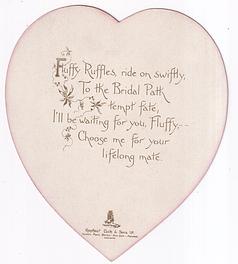 Fluffy Ruffles, ride on swiftly,
To the Bridal Path
tempt fate,
I'll be waiting for you, Fluffy,--
Choose me for your
lifelong mate.
Raphael Tuck & Sons Ltd